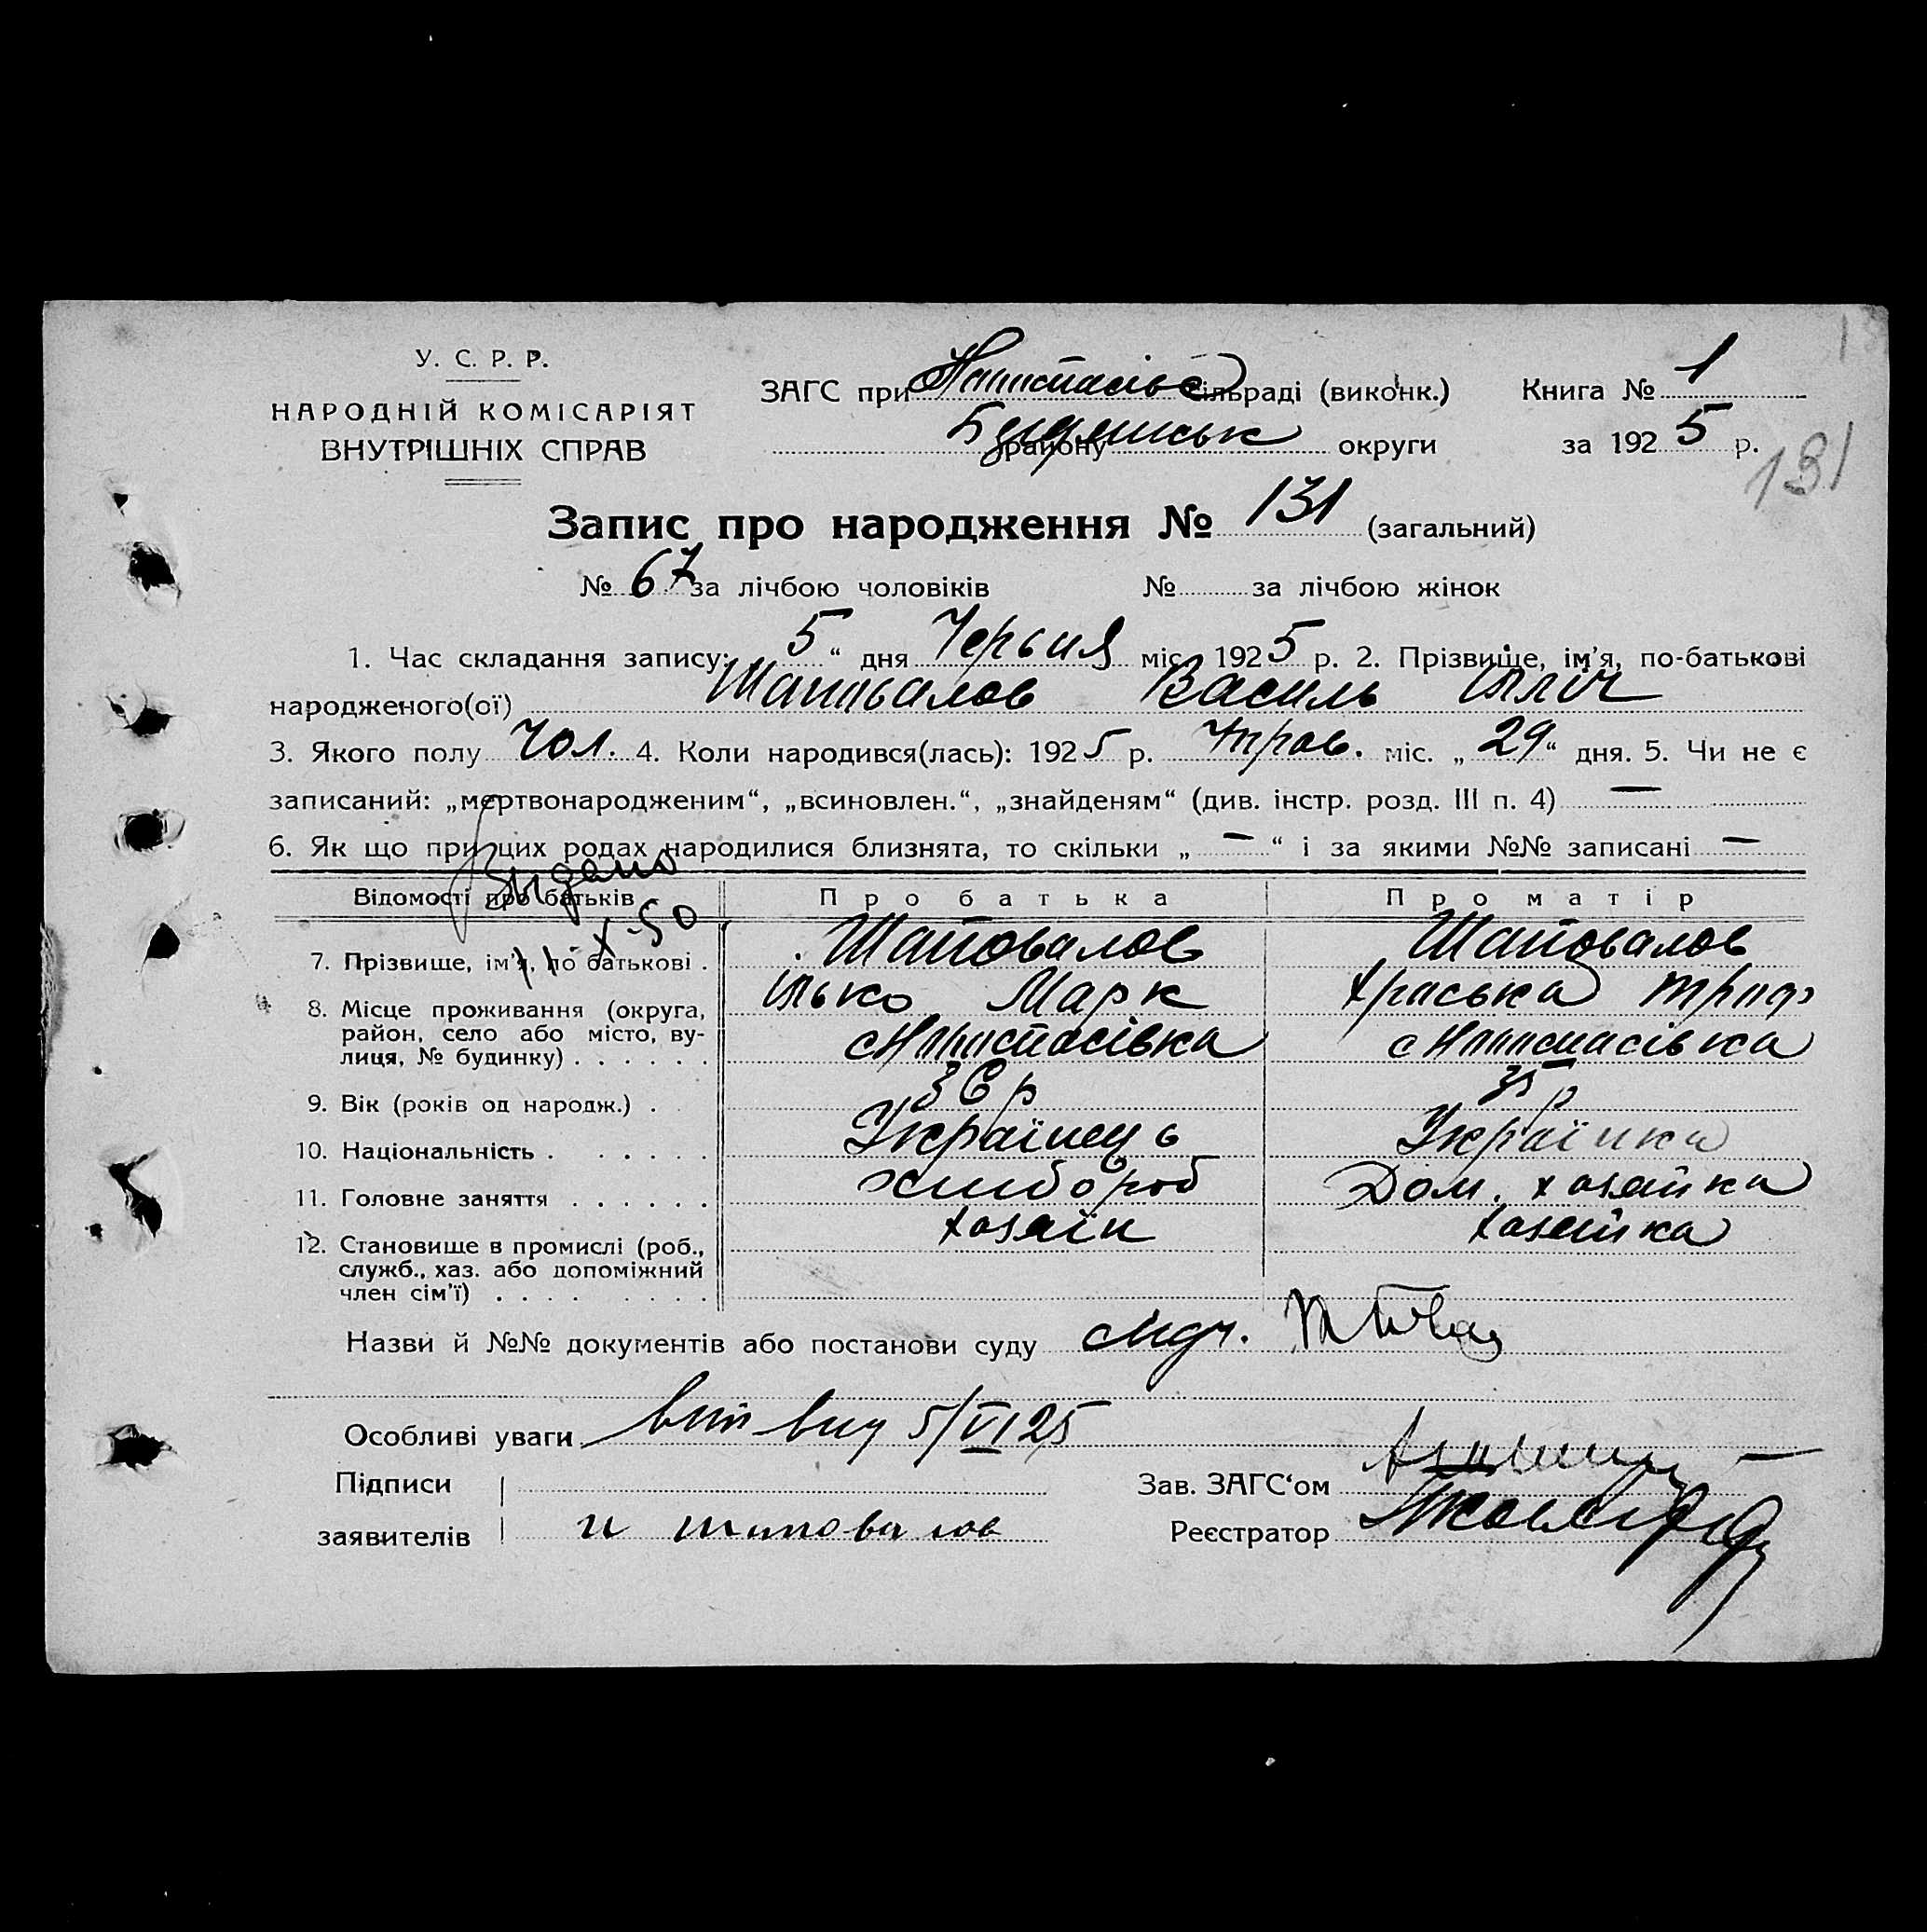 У. С. Р. Р.
НАРОДНІЙ КОМІСАРІЯТ
ВНУТРІШНІХ СПРАВ
ЗАГС при сільраді (виконк.) Книга № 1
району округи за 1925 р.
131
Запис про народження № 131 (загальний)
№ 67 за лічбою чоловіків № за лічбою жінок
1. Час складання запису: 5 “ дня Червня міс. 1925 р. 2. Прізвище, ім’я, по-батькові
народженого(ої) Шаповалов Василь Ілліч
3. Якого полу Чол. 4. Коли народився(лась): 1925 р. Трав. міс. „ 29 “ дня. 5. Чи не є
записаний: „мертвонародженим“, „всиновлен.“, „знайденям“ (див. інстр. розд. III п. 4) —
6. Як що при цих родах народилися близнята, то скільки „ — “ і за якими №№ записані —
Відомості про батьків Про батька Про матір
Видано
X-50
7. Прізвище, ім’я, по батькові . Шаповалов Шаповалов
Ілько Марк
8. Місце проживання (округа,
район, село або місто, ву-
лиця, № будинку) . . . . . .
9. Вік (років од народж.) . 36 р 35 р
10. Національність . . . . . . Українець Українка
11. Головне заняття . . . . . . хлібороб Дом. хозяйка
12. Становище в промислі (роб., хозяїн хозяйка
служб., хаз. або допоміжний
член сім’ї) . . . . . . . .
Назви й №№ документів або постанови суду
Особливі уваги 5/VI 25
Підписи
заявителів И шаповалов
Зав. ЗАГС‘ом
Реєстратор